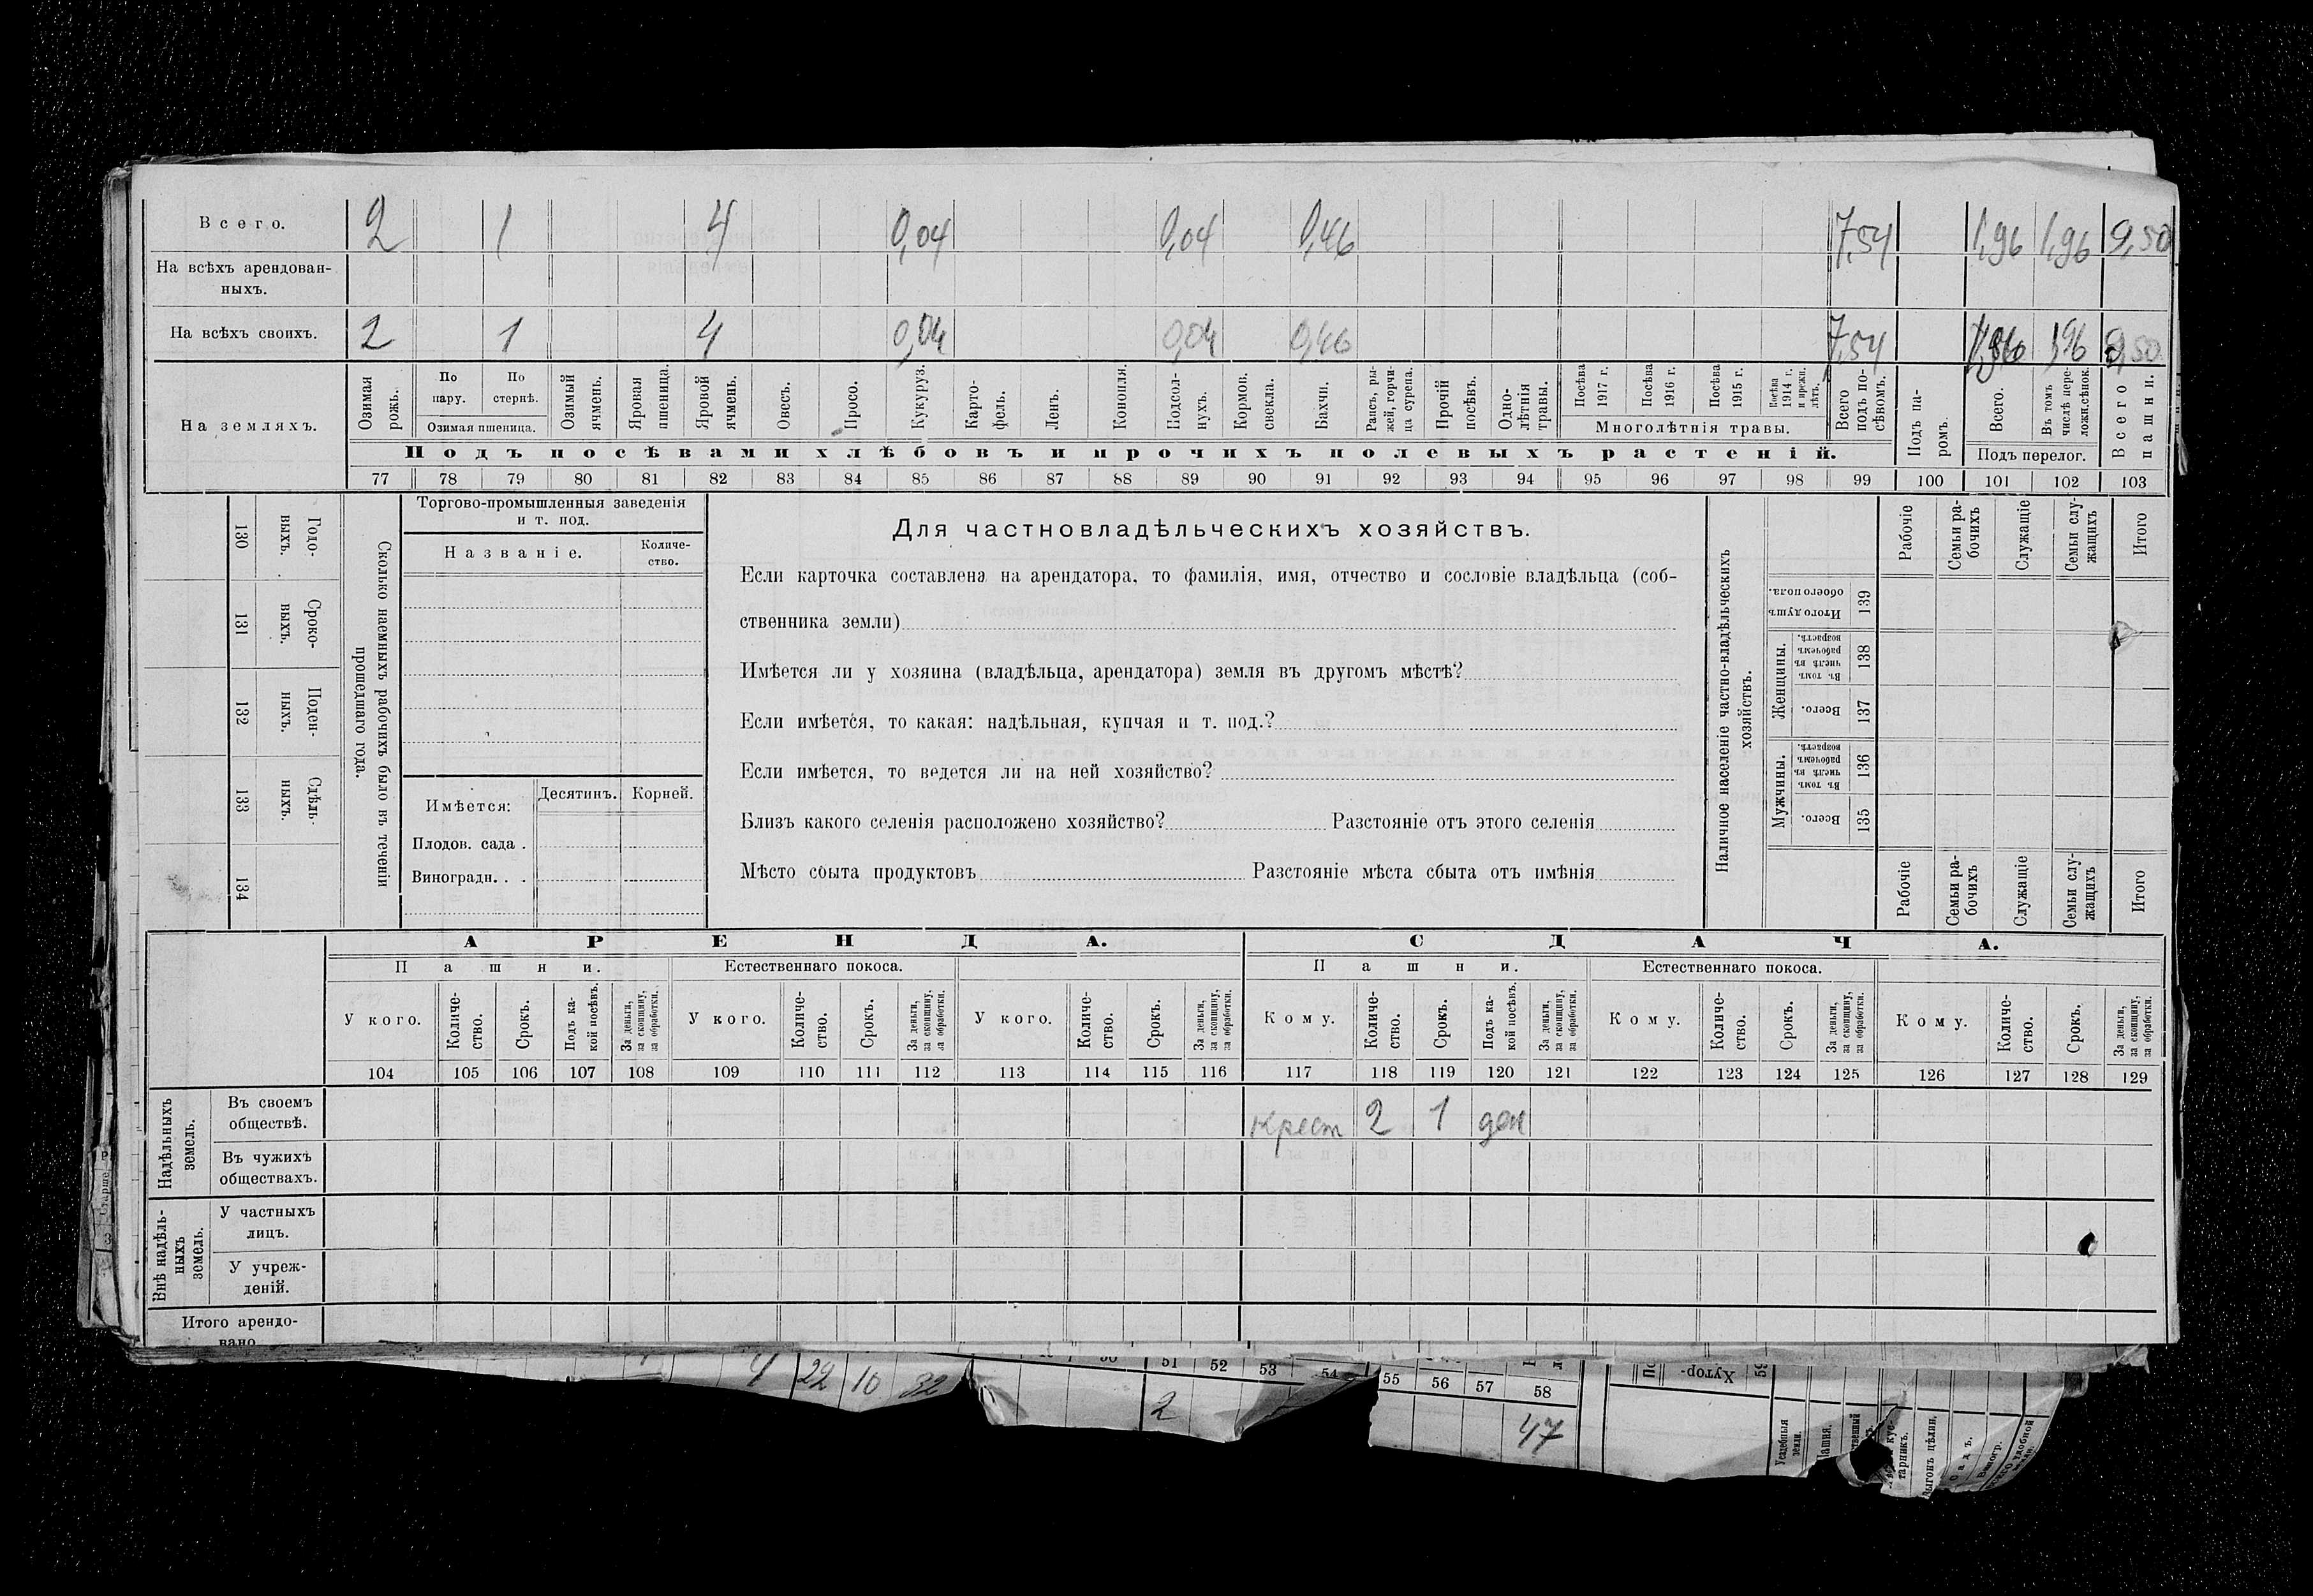 Всего. 2 1 4 0,04 0,04 0,46 7,54 1,96 1,96 9,50
На всѣхъ арендован-
ныхъ.
На всѣхъ своихъ. 2 1 4 0,04 0,04 0,46 7,54 1,96 1,96 9,50
На земляхъ.
Озимая рожь.
По пару.
По стернѣ.
Озимая пшеница.
Озимый ячмень.
Яровая пшеница.
Яровой ячмень.
Овесъ.
Просо.
Кукуруз.
Карто-
фель.
Ленъ.
Конопля.
Подсол-
нухъ.
Кормов. свекла.
Бахчи.
Рапсъ, ры-
жей, горчи-
ца сурепа.
Прочій посѣвъ.
Одно-
лѣтнія травы.
Посѣва 1917 г.
Посѣва 1916 г.
Посѣва 1915 г.
Посѣва 1914 г. и прежн. лѣтъ.
Многолѣтнія травы.
Всего подъ по-
сѣвомъ.
Подъ па-
ромъ.
Всего.
Въ томъ числѣ пере-
ложн.сѣнок.
Подъ перелог.
Всего пашни.
Подъ посѣвами хлѣбовъ и прочихъ полевыхъ растеній.
77 78 79 80 81 82 83 84 85 86 87 88 89 90 91 92 93 94 95 96 97 98 99 100 101 102 103
130 Годо-
выхъ.
131 Сроко-
выхъ.
132 Поден-
ныхъ.
133 Сдѣль-
ныхъ.
134
Сколько наемныхъ рабочихъ было въ теченіи
прошедшаго года.
Торгово-промышленныя заведенія
и т. под.
Названіе.
Количе-
ство.
Имѣется:
Десятинъ. Корней.
Плодов. сада .
Виноградн. . .
Для частновладѣльческихъ хозяйствъ.
Если карточка составлена на арендатора, то фамилія, имя, отчество и сословіе владѣльца (соб-
ственника земли)
Имѣется ли у хозяина (владѣльца, арендатора) земля въ другомъ мѣстѣ?
Если имѣется, то какая: надѣльная, купчая и т. под.?
Если имѣется, то ведется ли на ней хозяйство?
Близъ какого селенія расположено хозяйство? Разстояніе отъ этого селенія
Мѣсто сбыта продуктовъ Разстояніе мѣста сбыта отъ имѣнія
Наличное населеніе частно-владѣльческихъ
хозяйствъ.
Рабочіе
Семьи ра-
бочихъ
Служащіе
Семьи слу-
жащихъ
Итого
Итого душъ обоего пола. 139
Женщины.
Въ томъ числѣ въ рабочемъ возрастѣ. 138
Всего. 137
Мужчины.
Въ томъ числѣ въ рабочемъ возрастѣ. 136
Всего. 135
Рабочіе
Семьи ра-
бочихъ
Служащіе
Семьи слу-
жащихъ
Итого
АРЕНДА. СДАЧА.
Пашни. Естественнаго покоса. Пашни. Естественнаго покоса.
У кого.
Количе-
ство.
Срокъ.
Подъ ка-
кой посѣвъ.
За деньги,
за скопщину,
за обработки.
У кого.
Количе-
ство.
Срокъ.
За деньги,
за скопщину,
за обработки.
У кого.
Количе-
ство.
Срокъ.
За деньги,
за скопщину,
за обработки.
Кому.
Количе-
ство.
Срокъ.
Подъ ка-
кой посѣвъ.
За деньги,
за скопщину,
за обработки.
Кому.
Количе-
ство.
Срокъ.
За деньги,
за скопщину,
за обработки.
Кому.
Количе-
ство.
Срокъ.
За деньги,
за скопщину,
за обработки.
104 105 106 107 108 109 110 111 112 113 114 115 116 117 118 119 120 121 122 123 124 125 126 127 128 129
Надѣльныхъ
земель.
Въ своемъ
обществѣ.
крест 2 1 ден
Въ чужихъ
обществахъ.
Внѣ надѣль-
ныхъ
земель.
У частныхъ
лицъ.
У учреж-
деній.
Итого арендо-
вано
Старше
4 22 10 32
51 52 53 54 55 56 57 58
2
47
Хутор-
59
Усадебныя земли.
Пашня.
тарникъ.
Выгонъ цѣлин.
Садъ.
Виногр.
удобной